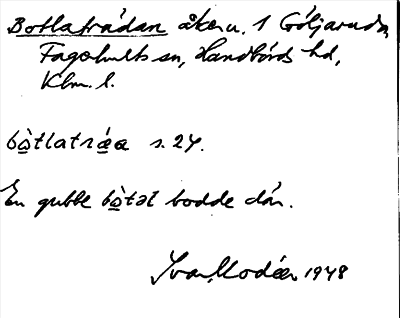 Botlatrådan åker u. 1 Göljaryda,
Fagerhults sn, Handbörds hd,
Klm. l.
bòtlatráa s. 24.
En gubbe bòtəl bodde där.
Ivar Modéer 1948